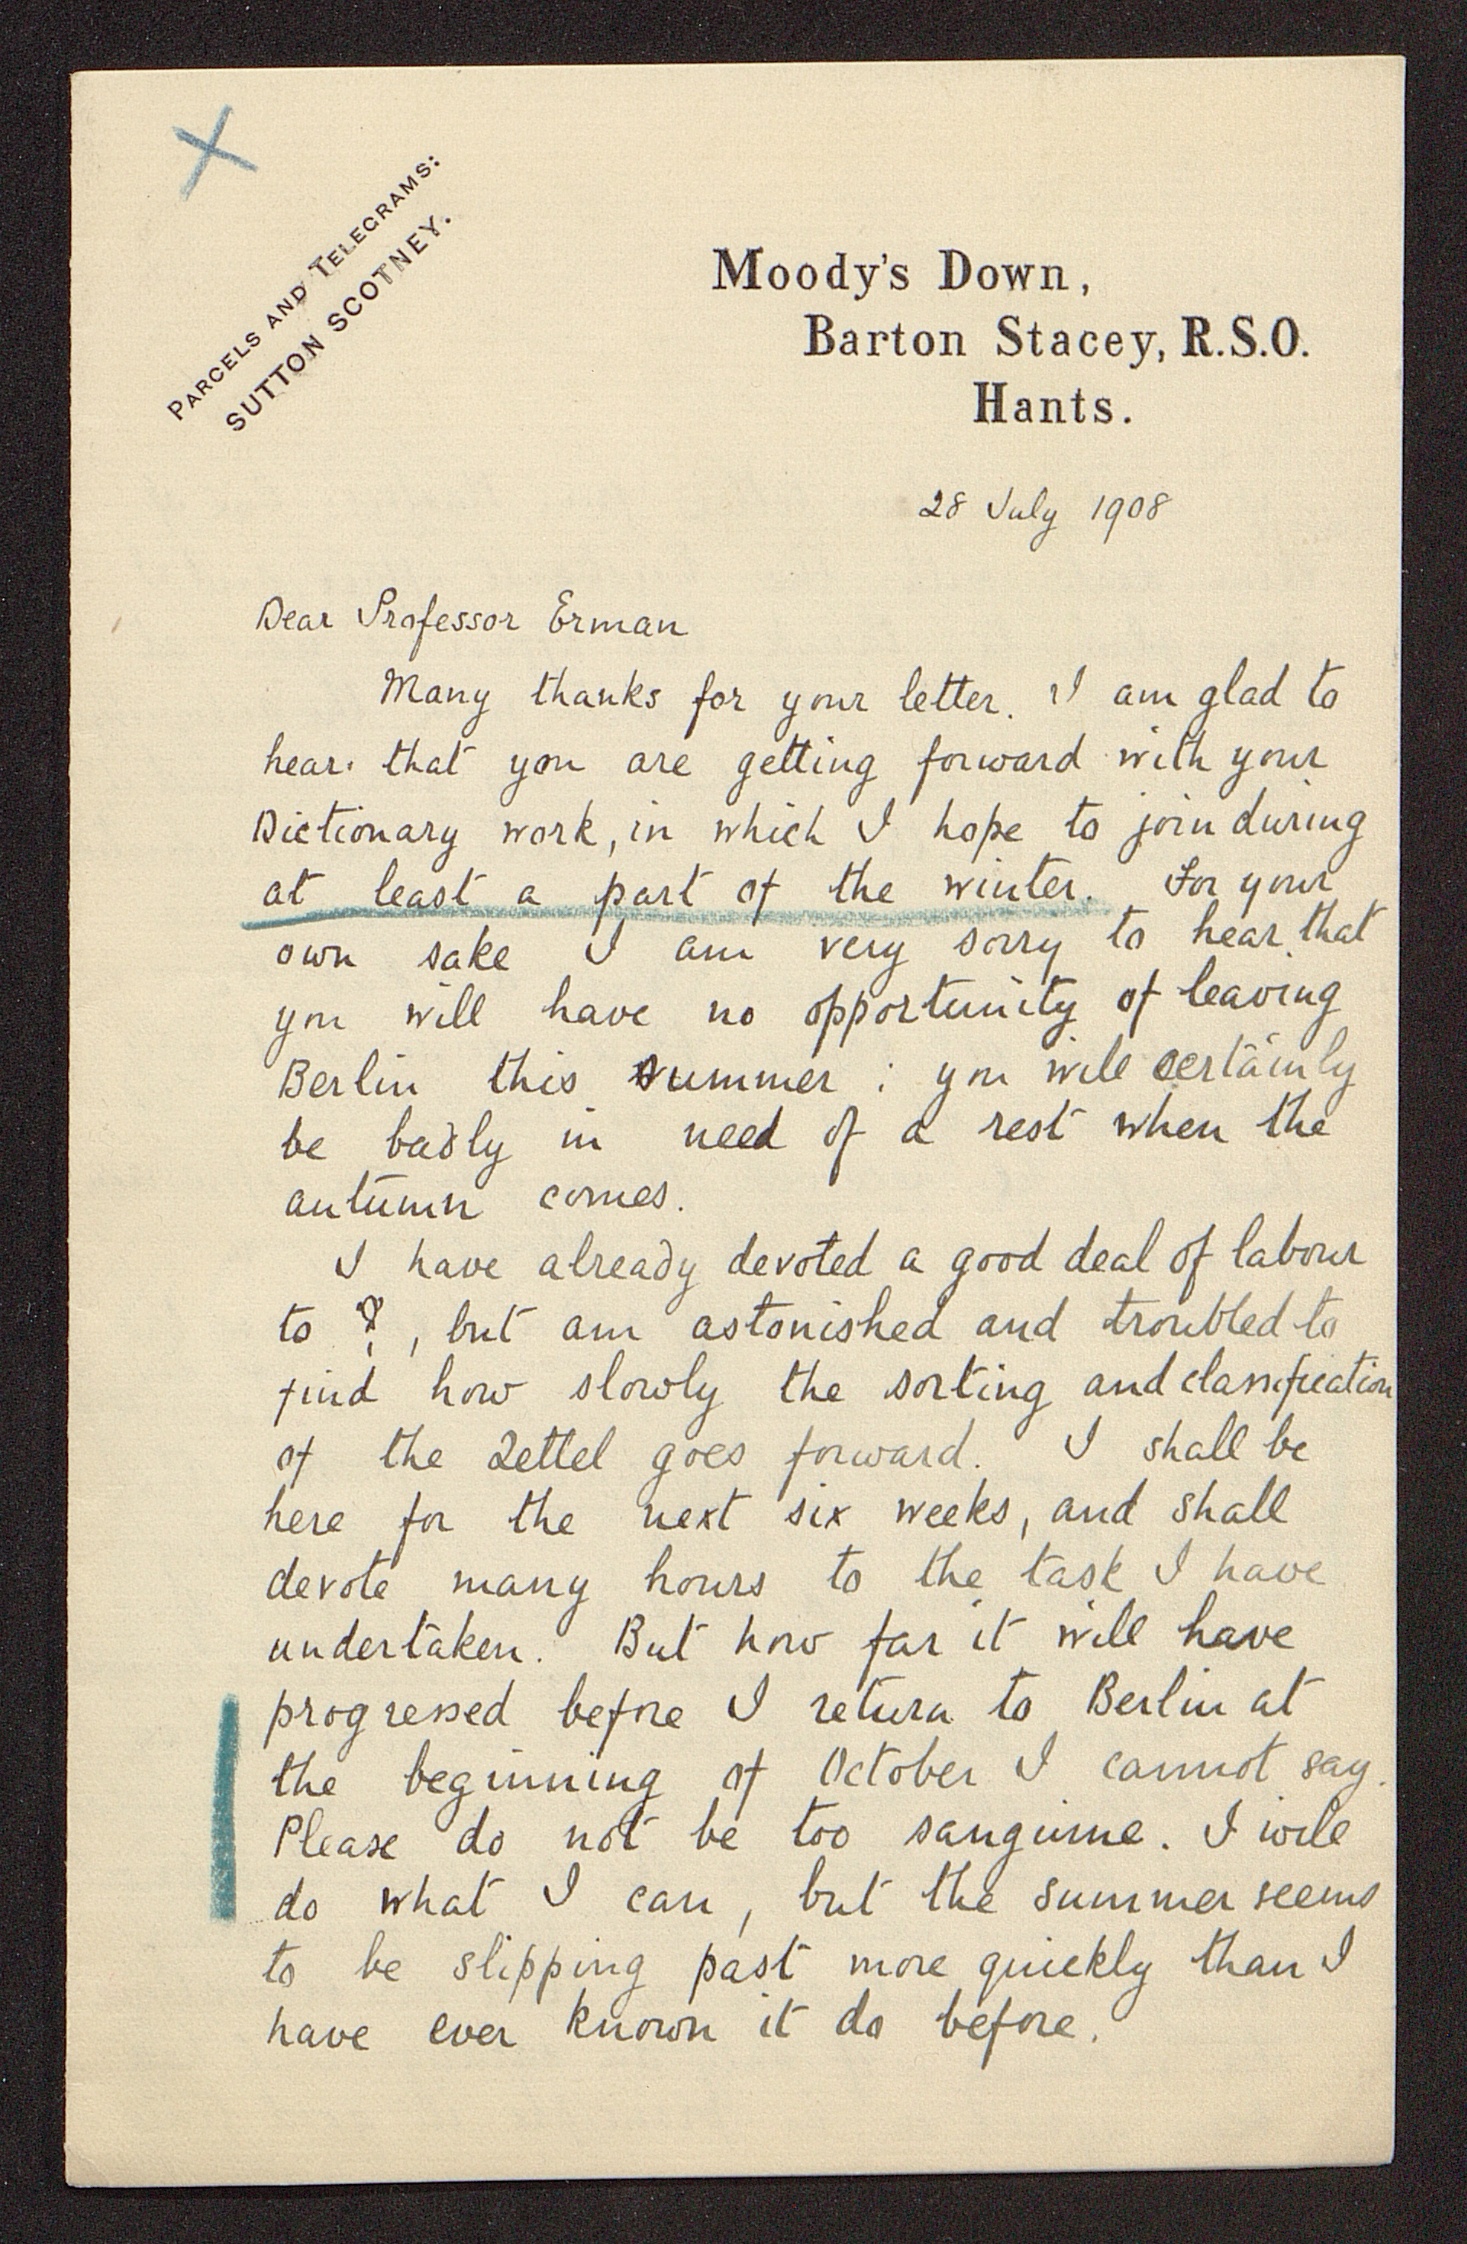 PARCELS AND TELEGRAMS:
SUTTON SCOTNEY.
Moody's Down,
Barton Stacey, R.S.O.
Hants.
28 July 1908
Dear Professor Erman
Many thanks for your letter. I am glad to
hear that you are getting forward with your
Dictionary work, in which I hope to join during
at least a part of the winter. For your
own sake I am very sorry to hear that
you will have no opportunity of leaving
Berlin this summer ; you will certainly
be badly in need of a rest when the
autumn comes.
I have already devoted a good deal of labour
to 𓁷, but am astonished and troubled to
find how slowly the sorting and classification
of the Zettel goes forward. I shall be
here for the next six weeks, and shall
devote many hours to the task I have
undertaken. But how far it will have
progressed before I return to Berlin at
the beginning of October I cannot say.
Please do not be too sanguine. I will
do what I can, but the summer seems
to be slipping past more quickly than I
have ever known it do before.